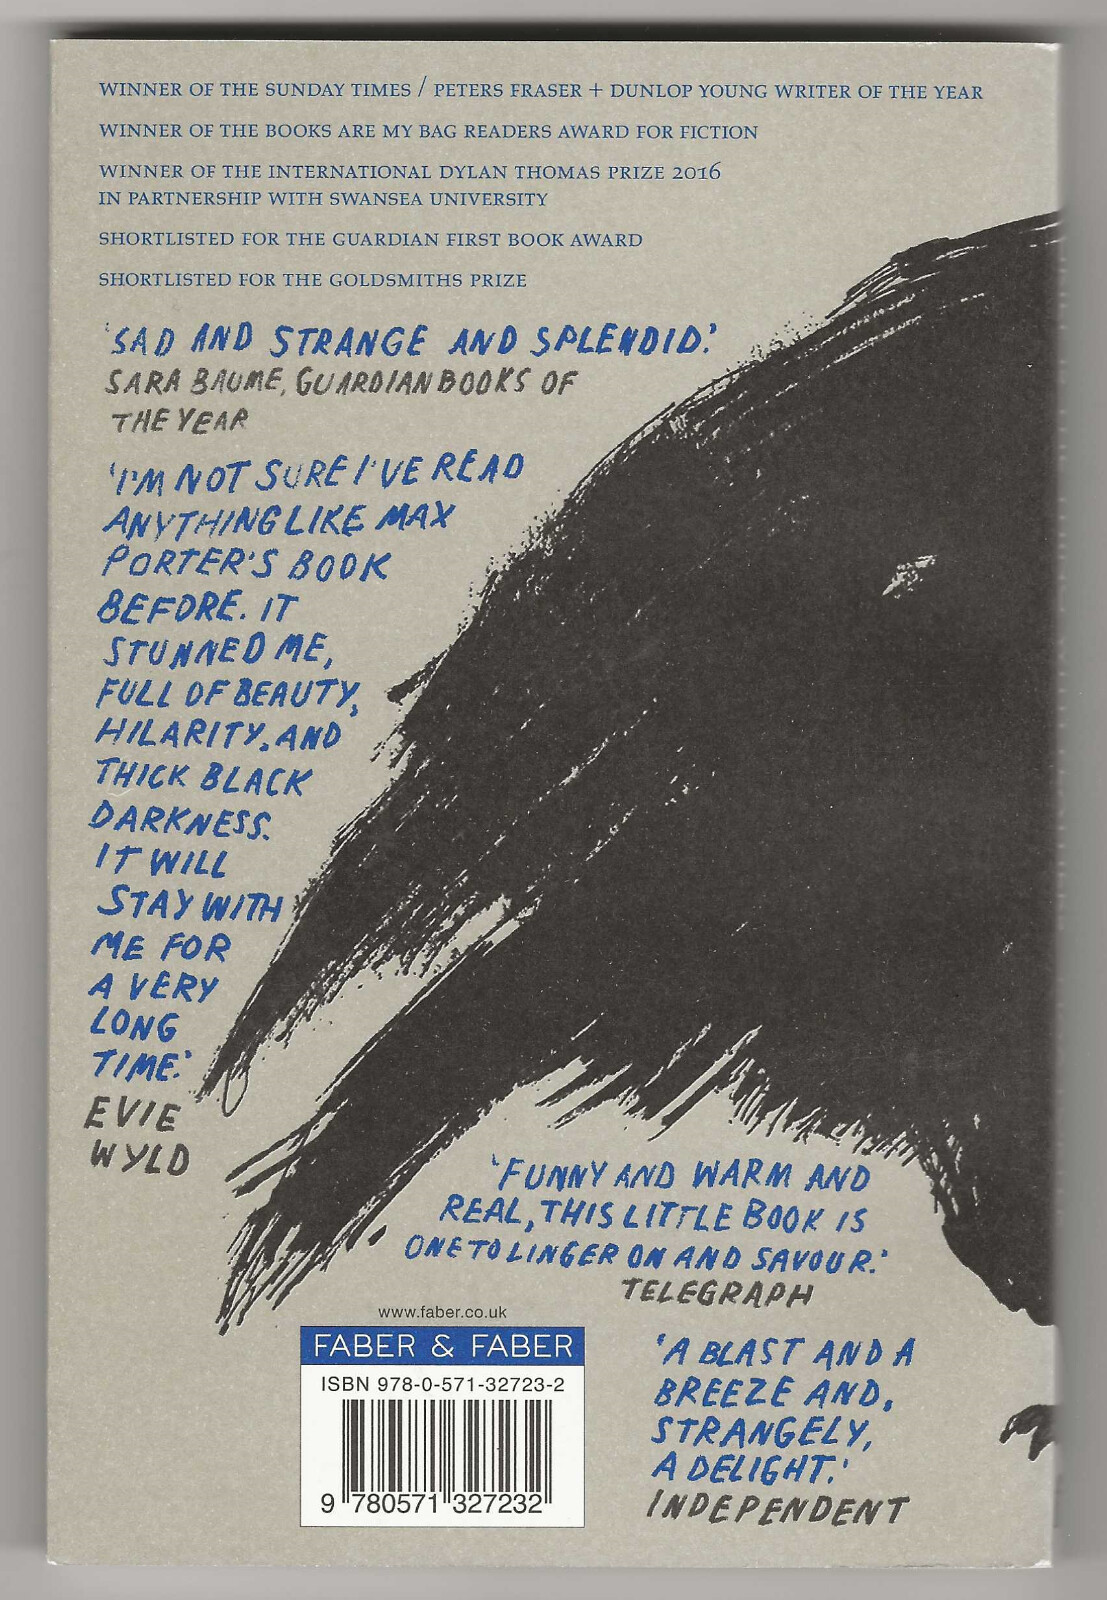 WINNER OF THE SUNDAY TIMES / PETERS FRASER + DUNLOP YOUNG WRITER OF THE YEAR
WINNER OF THE BOOKS ARE MY BAG READERS AWARD FOR FICTION
WINNER OF THE INTERNATIONAL DYLAN THOMAS PRIZE 2016
IN PARTNERSHIP WITH SWANSEA UNIVERSITY
SHORTLISTED FOR THE GUARDIAN FIRST BOOK AWARD
SHORTLISTED FOR THE GOLDSMITHS PRIZE
'SAD AND STRANGE AND SPLENDID.'
SARA BAUME, GUARDIAN BOOKS OF
THE YEAR
'I'M NOT SURE I'VE READ
ANYTHING LIKE MAX
PORTER'S BOOK
BEFORE. IT
STUNNED ME,
FULL OF BEAUTY,
HILARITY, AND
THICK BLACK
DARKNESS.
IT WILL
STAY WITH
ME FOR
A VERY
LONG
TIME.'
EVIE
WYLD
'FUNNY AND WARM AND
REAL, THIS LITTLE BOOK IS
ONE TO LINGER ON AND SAVOUR.'
TELEGRAPH
'A BLAST AND A
BREEZE AND,
STRANGELY,
A DELIGHT.'
INDEPENDENT
www.faber.co.uk
FABER & FABER
ISBN 978-0-571-32723-2
9 780571 327232